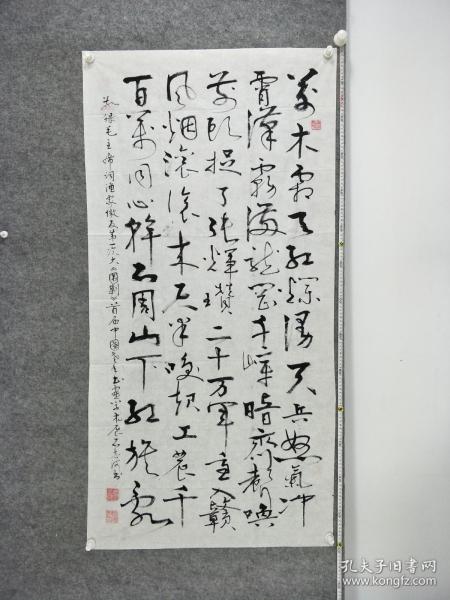 萬木霜天红烂漫天兵怒氣冲
霄漢霧满龙岡千嶂暗齐聲唤
前头捉了张輝瓒二十万军重入贛
风烟滚滚来天半唤起工农千
百萬同心幹不周山下红旗乱
敬録毛主席词渔家傲反第一次大围剿首届中国老年书画
孔夫子旧书网
www.kongfz.com